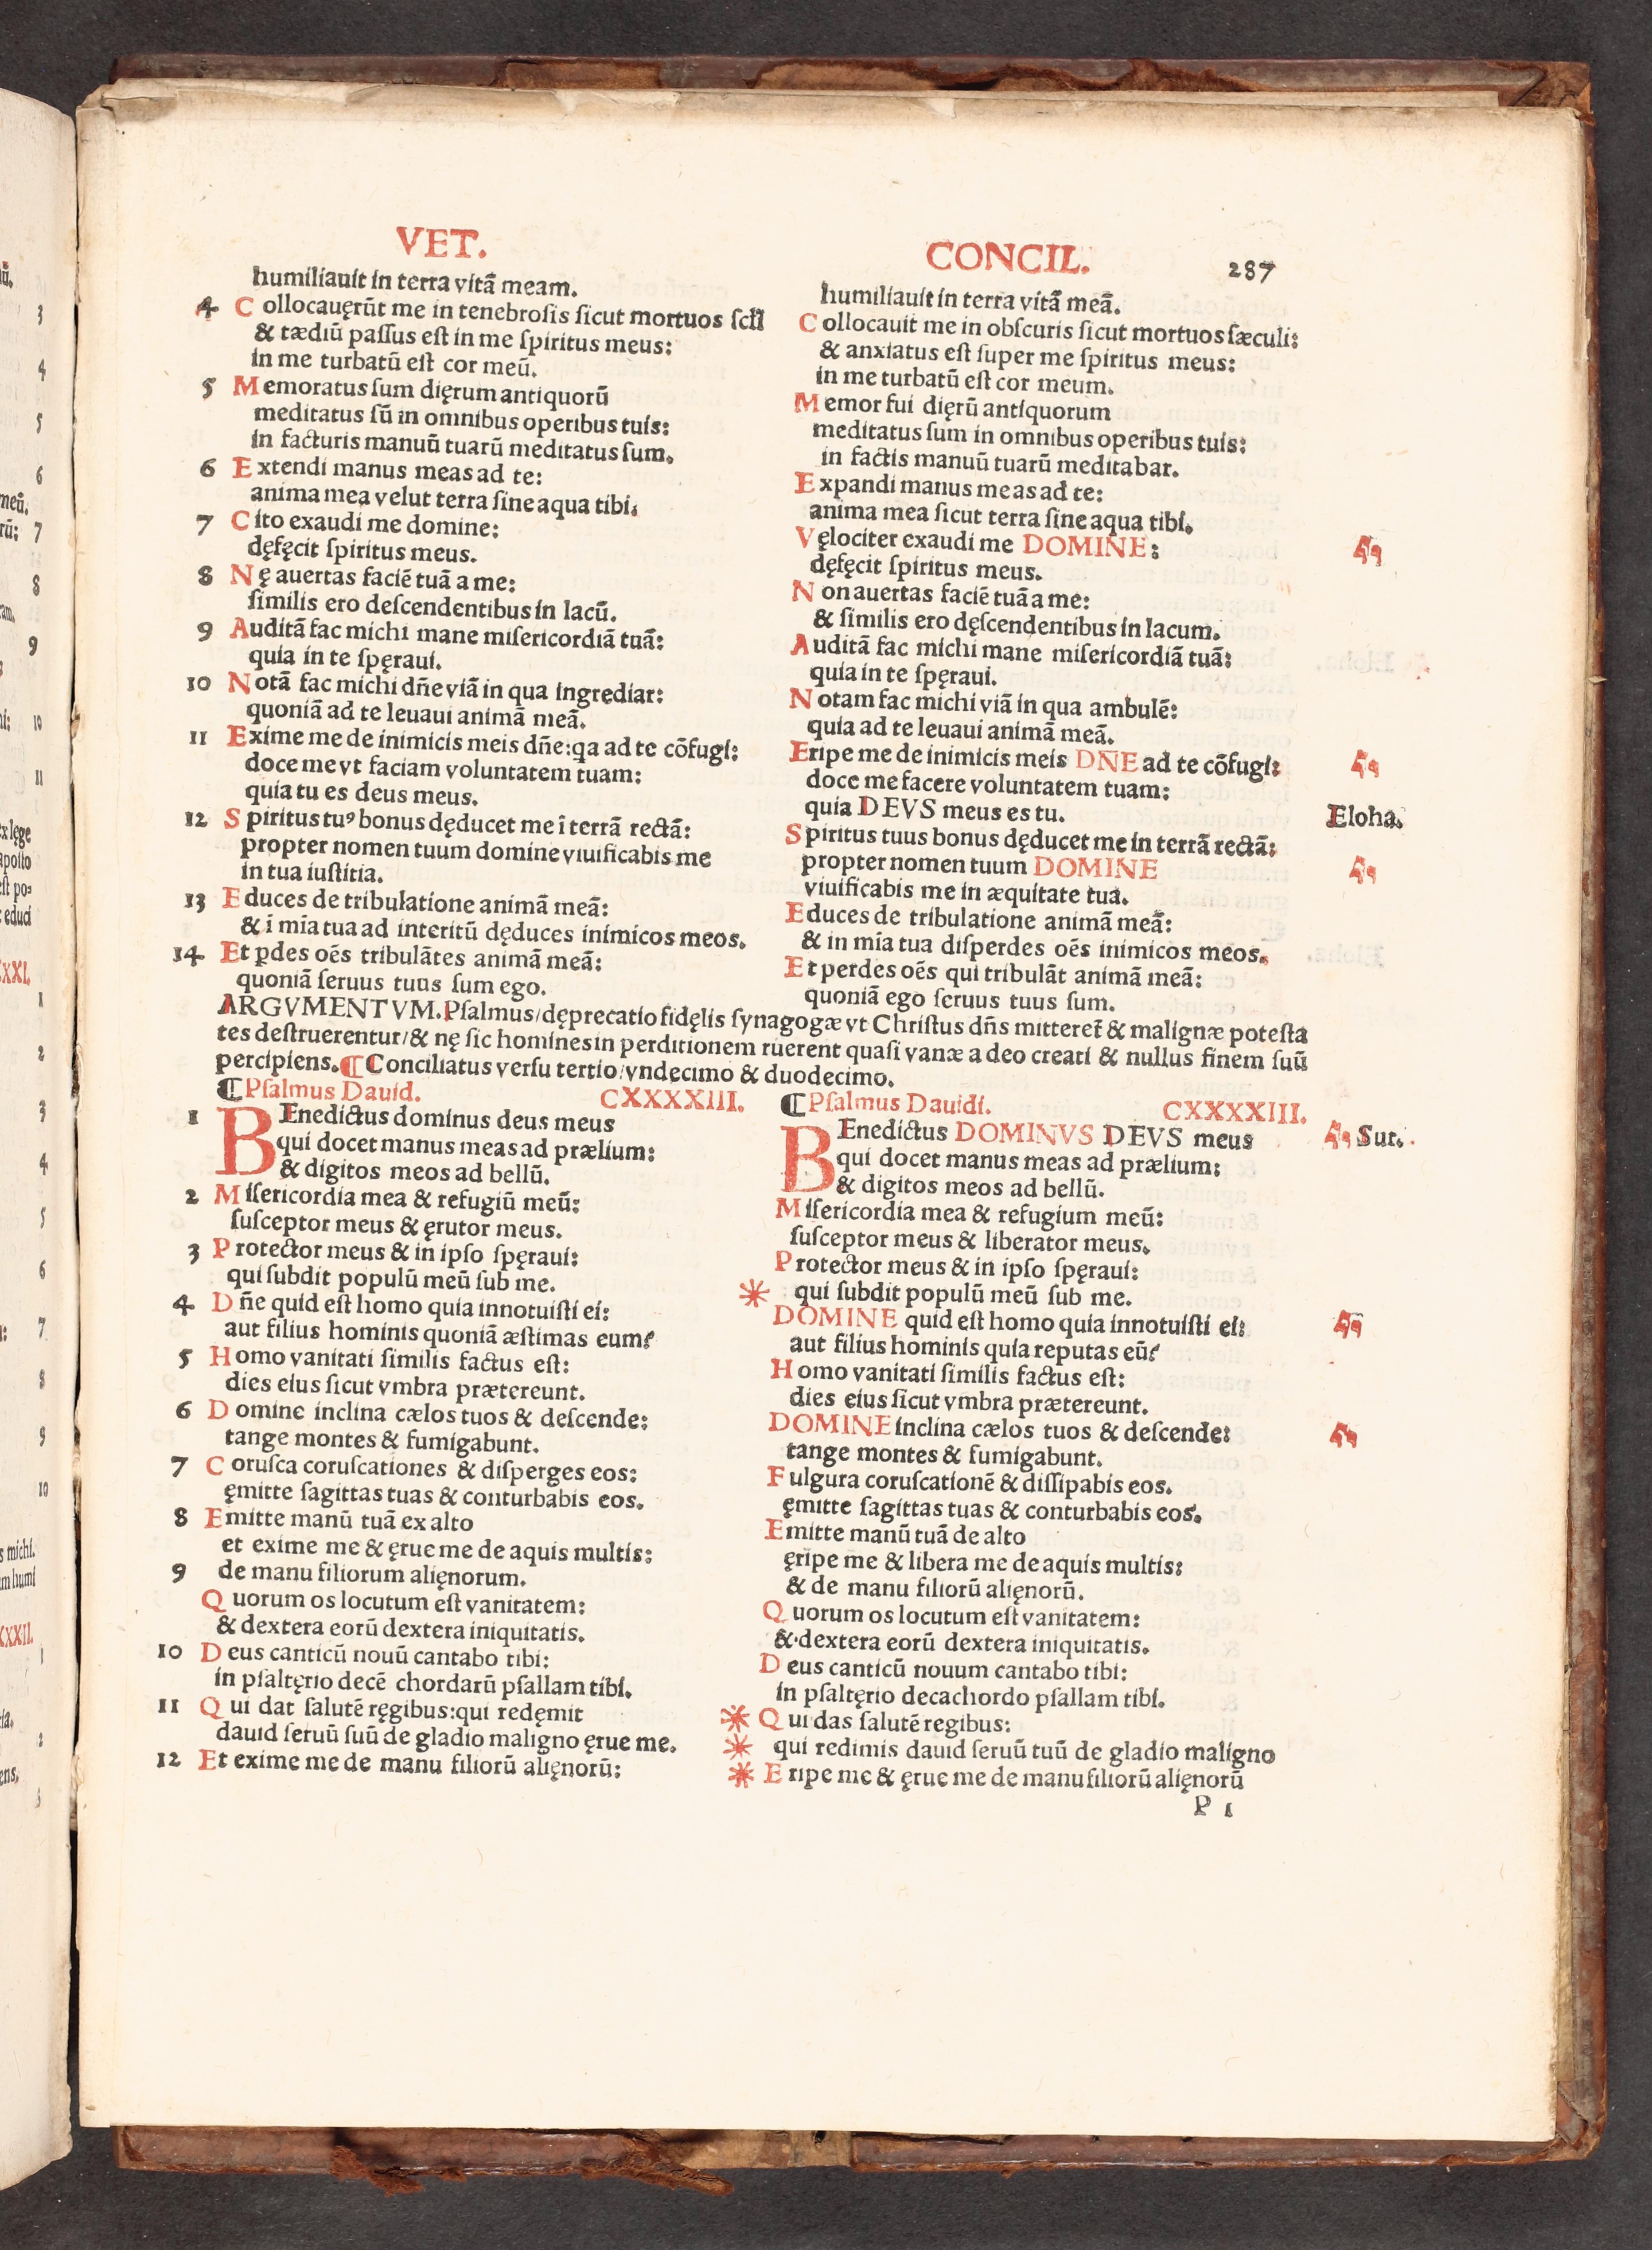 VET.
humiliauit in terra vitã meam.
4 Collocauęrũt me in tenebrosis sicut mortuos scłł
& tædiũ passus est in me spiritus meus:
in me turbatũ est cor meũ.
5 Memoratus sum dięrum antiquorũ
meditatus sũ in omnibus operibus tuis:
in facturis manuũ tuarũ meditatus sum.
6 Extendi manus meas ad te:
anima mea velut terra sine aqua tibi.
7 Cito exaudi me domine:
dęfęcit spiritus meus.
8 Nę auertas faciẽ tuã a me:
similis ero descendentibus in lacũ.
9 Auditã fac michi mane misericordiã tuã:
quia in te spęraui.
10 Notã fac michi dñe viã in qua ingrediar:
quoniã ad te leuaui animã meã.
11 Exime me de inimicis meis dñe:qa ad te cõfugi:
doce me vt faciam voluntatem tuam:
quia tu es deus meus.
12 Spiritus tuꝰ bonus dęducet me ĩ terrã rectã:
propter nomen tuum domine viuificabis me
in tua iustitia.
13 Educes de tribulatione animã meã:
& ĩ mĩa tua ad interitũ dęduces inimicos meos.
14 Et ꝑdes oẽs tribulãtes animã meã:
quoniã seruus tuus sum ego.
CONCIL. 287
humiliauit in terra vitã meã.
Collocauit me in obscuris sicut mortuos sæculi:
& anxiatus est super me spiritus meus:
in me turbatũ est cor meum.
Memor fui dięrũ antiquorum
meditatus sum in omnibus operibus tuis:
in factis manuũ tuarũ meditabar.
Expandi manus meas ad te:
anima mea sicut terra sine aqua tibi.
Vęlociter exaudi me DOMINE:
dęfęcit spiritus meus.
Non auertas faciẽ tuã a me:
& similis ero dęscendentibus in lacum.
Auditã fac michi mane misericordiã tuã:
quia in te spęraui.
Notam fac michi viã in qua ambulẽ:
quia ad te leuaui animã meã.
Eripe me de inimicis meis DÑE ad te cõfugi:
doce me facere voluntatem tuam:
quia DEVS meus es tu. Eloha.
Spiritus tuus bonus dęducet me in terrã rectã:
propter nomen tuum DOMINE
viuificabis me in æquitate tua.
Educes de tribulatione animã meã:
& in mĩa tua disperdes oẽs inimicos meos.
Et perdes oẽs qui tribulãt animã meã:
quoniã ego seruus tuus sum.
ARGVMENTVM.Psalmus/dęprecatio fidęlis synagogæ vt Christus dñs mitteret̃ & malignæ potesta
tes destruerentur/& nę sic homines in perditionem ruerent quasi vanæ a deo creati & nullus finem suũ
percipiens.¶Conciliatus versu tertio/vndecimo & duodecimo.
¶Psalmus Dauid. CXXXXIII.
1 BEnedictus dominus deus meus
qui docet manus meas ad prælium:
& digitos meos ad bellũ.
2 Misericordia mea & refugiũ meũ:
susceptor meus & ęrutor meus.
3 Protector meus & in ipso spęraui:
qui subdit populũ meũ sub me.
4 Dñe quid est homo quia innotuisti ei:
aut filius hominis quoniã æstimas eum?
5 Homo vanitati similis factus est:
dies eius sicut vmbra prætereunt.
6 Domine inclina cælos tuos & descende:
tange montes & fumigabunt.
7 Corusca coruscationes & disperges eos:
ęmitte sagittas tuas & conturbabis eos.
8 Emitte manũ tuã ex alto
et exime me & ęrue me de aquis multis:
9 de manu filiorum alięnorum.
Quorum os locutum est vanitatem:
& dextera eorũ dextera iniquitatis.
10 Deus canticũ nouũ cantabo tibi:
in psaltęrio decẽ chordarũ psallam tibi.
11 Qui dat salutẽ ręgibus:qui redęmit
dauid seruũ suũ de gladio maligno ęrue me.
12 Et exime me de manu filiorũ alięnorũ:
¶Psalmus Dauidi. CXXXXIII.
BEnedictus DOMINVS DEVS meus Sur.
qui docet manus meas ad prælium:
& digitos meos ad bellũ.
Misericordia mea & refugium meũ:
susceptor meus & liberator meus.
Protector meus & in ipso spęraui:
qui subdit populũ meũ sub me.
DOMINE quid est homo quia innotuisti ei:
aut filius hominis quia reputas eũ?
Homo vanitati similis factus est:
dies eius sicut vmbra prætereunt.
DOMINE inclina cælos tuos & descende:
tange montes & fumigabunt.
Fulgura coruscationẽ & dissipabis eos.
ęmitte sagittas tuas & conturbabis eos.
Emitte manũ tuã de alto
ęripe me & libera me de aquis multis:
& de manu filiorũ alięnorũ.
Quorum os locutum est vanitatem:
& dextera eorũ dextera iniquitatis.
Deus canticũ nouum cantabo tibi:
in psaltęrio decachordo psallam tibi.
Qui das salutẽ regibus:
qui redimis dauid seruũ tuũ de gladio maligno
Eripe me & ęrue me de manu filiorũ alięnorũ
P 1